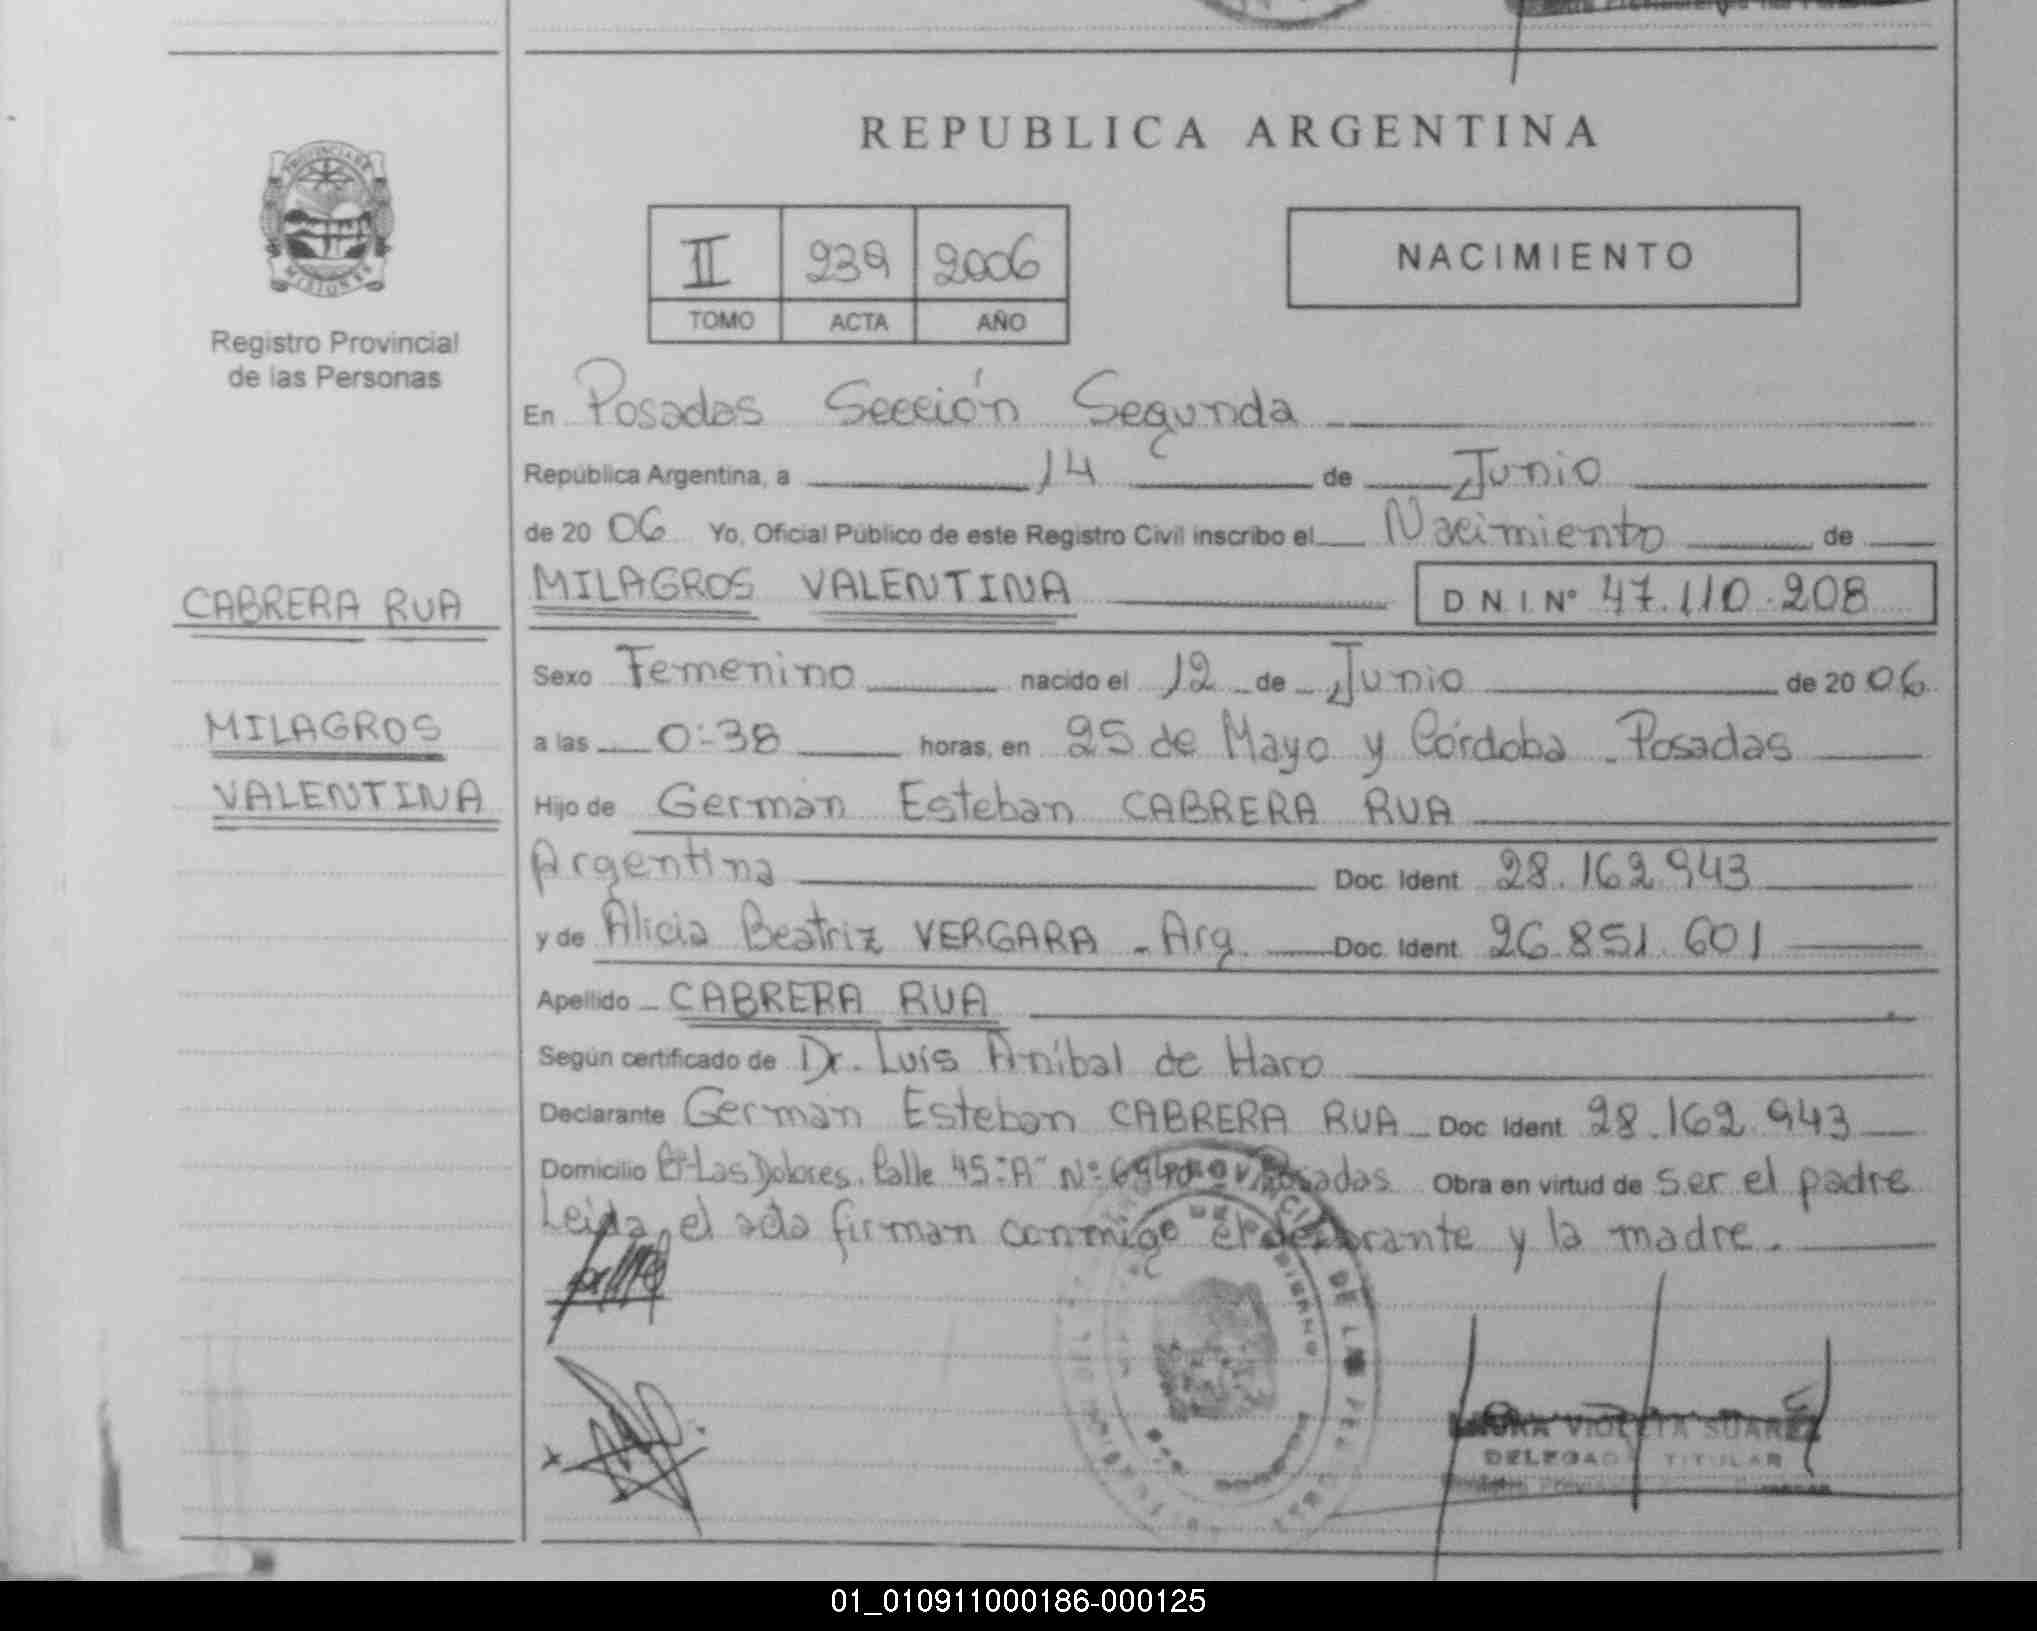 REPUBLICA ARGENTINA
PROVINCIA DE
MISIONES
Registro Provincial
de las Personas
II 239 2006
TOMO ACTA AÑO
NACIMIENTO
En Posadas Sección Segunda
República Argentina, a 14 de Junio
de 20 06 Yo, Oficial Público de este Registro Civil inscribo el Nacimiento de
CABRERA RUA
MILAGROS VALENTINA D N I. Nº 47.110.208
Sexo Femenino nacido el 12 de Junio de 20 06
MILAGROS
a las 0:38 horas, en 25 de Mayo y Córdoba - Posadas
VALENTINA
Hijo de Germán Esteban CABRERA RUA
Argentina Doc. Ident 28.162.943
y de Alicia Beatriz VERGARA - Arg. Doc. Ident 26.851.601
Apellido CABRERA RUA
Según certificado de Dr. Luis Anibal de Haro
Declarante Germán Esteban CABRERA RUA Doc Ident 28.162.943
Domicilio Las Dolores. Calle 45-"A" Nº Posadas Obra en virtud de ser el padre
Leida el acta firman conmigo el declarante y la madre.
LAURA VIOLETA SUAREZ
DELEGADA TITULAR
01_010911000186-000125